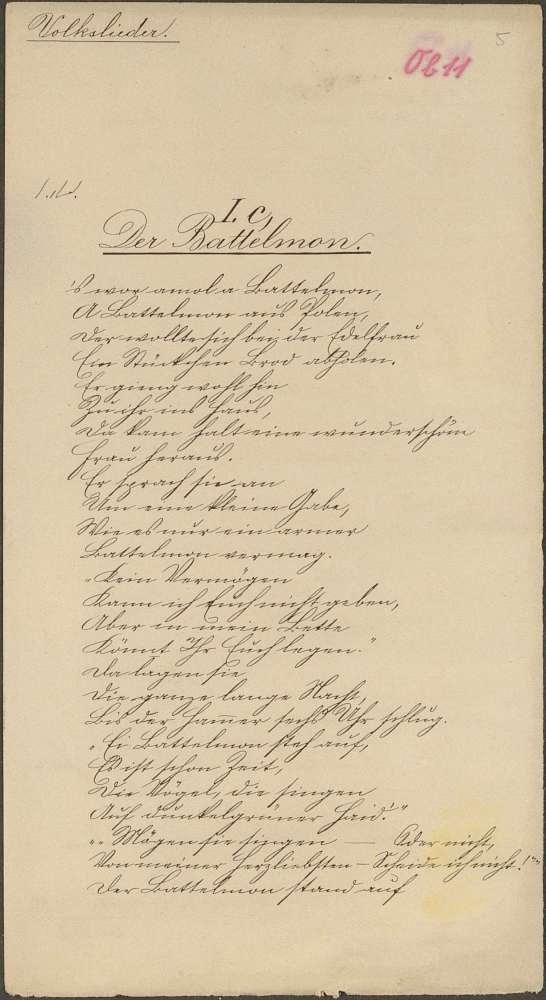 Volkslieder.
Ob 11
5
I. c,
Der Battelmon.
's wor amol a Battelmon,
A Battelmon aus Polen,
Der wollte sich bei der Edelfrau
Ein Stückchen Brod abholen.
Er gieng wohl hin
Zu ihr ins Haus,
Da kam halt eine wunderschöne
Frau heraus.
Er sprach sie an
Um eine kleine Gabe,
Wie es nur ein armer
Battelmon vermag.
"Kein Vermögen
Kann ich Euch nicht geben,
Aber in mein Bette
Könnt Ihr Euch legen."
Da lagen sie
Die ganze lange Nacht,
Bis der Hammer sechs Uhr schlug.
"Ei Battelmon steh auf,
Es ist schon Zeit,
Die Vögel, die singen
Auf dunkelgrüner Haid'."
""Mögen sie singen — Oder nicht,
Von meiner Herzliebsten – Scheide ich nicht!""
Der Battelmon stand auf